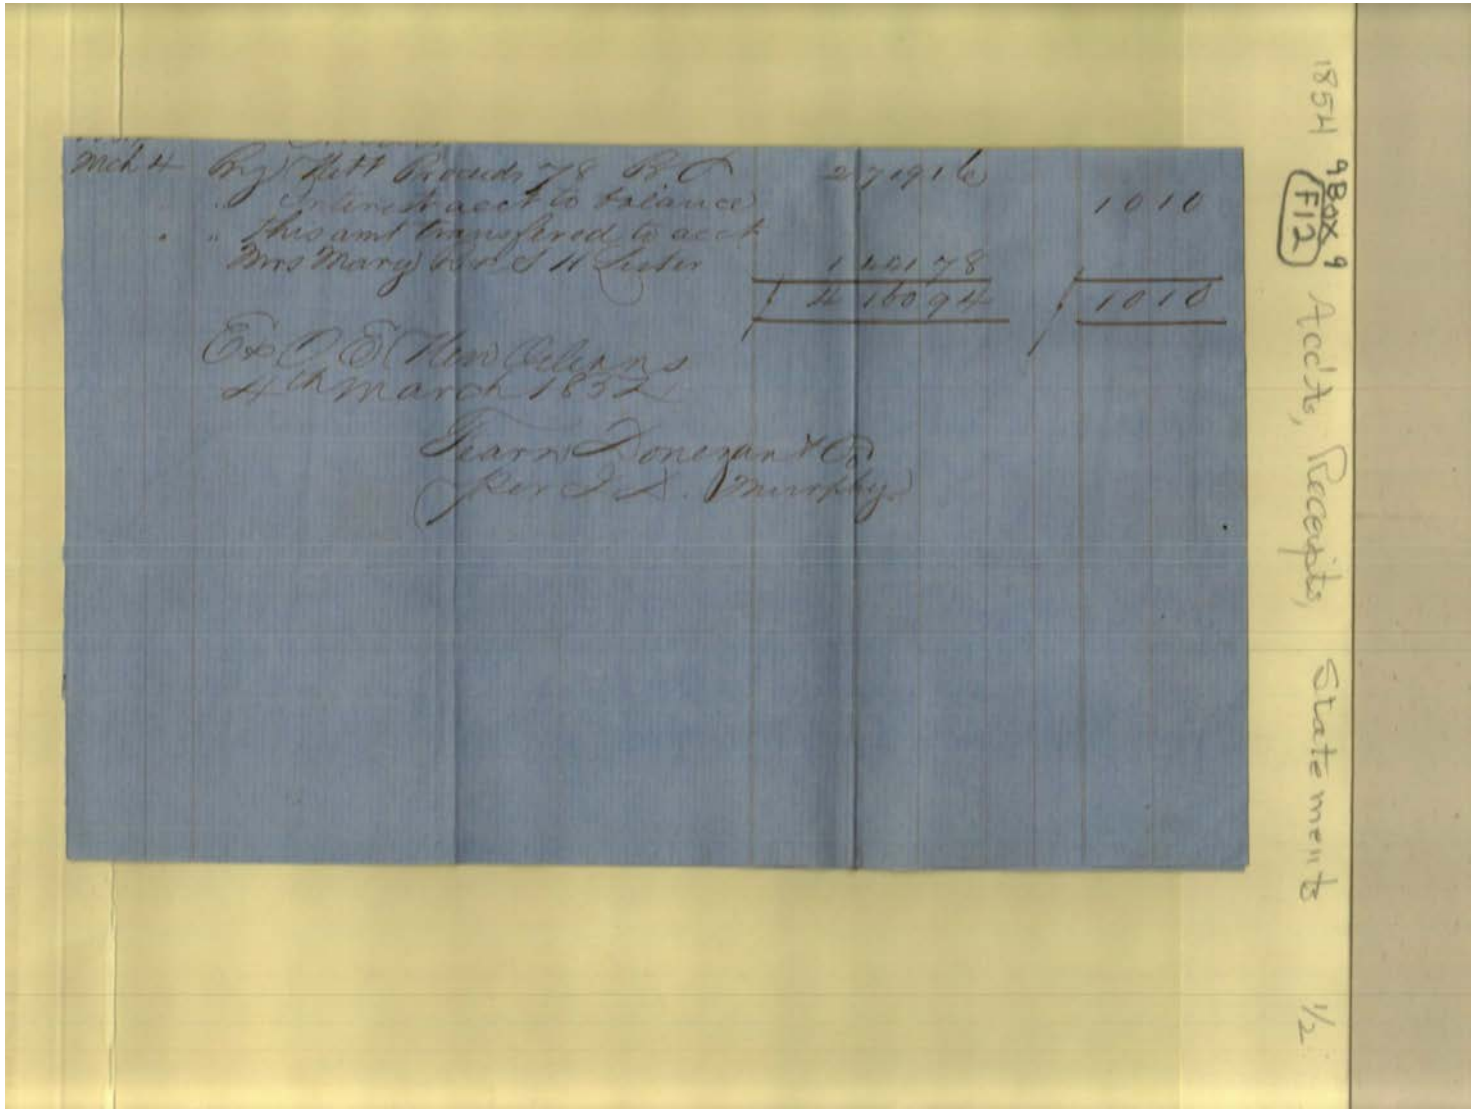 Mch 4 By Nett Proceeds 78 B C 2719 16
" " Interest acct to balance 10 10
" " this amt transfered to acct
Mrs Mary 1441 78
4160 94 10 10
E & O E New Orleans
4th March 1852
Fearn Donegan & Co
Per Murphy
1854 Box 9 F12 Accts, Receipts, Statements 1/2